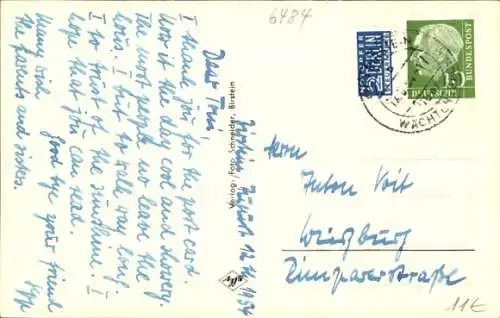 6484
Dear Toni,
I thank you for the post card.
Now it the day cool and showery.
The most people no leave the
I but to walk way long.
I to trust of the sunshine. I
hope that you can read.
Good bye your friend
Many wish
the parents and sisters.
Verlag: Foto Schneider, Birstein
12. 1954
Herrn
Anton Voit
Würzburg
Zimpererstraße
NOTOPFER
2 BERLIN
STEUERMARKE
10
DEUTSCHE
BUNDESPOST
WÄCHTE
11€